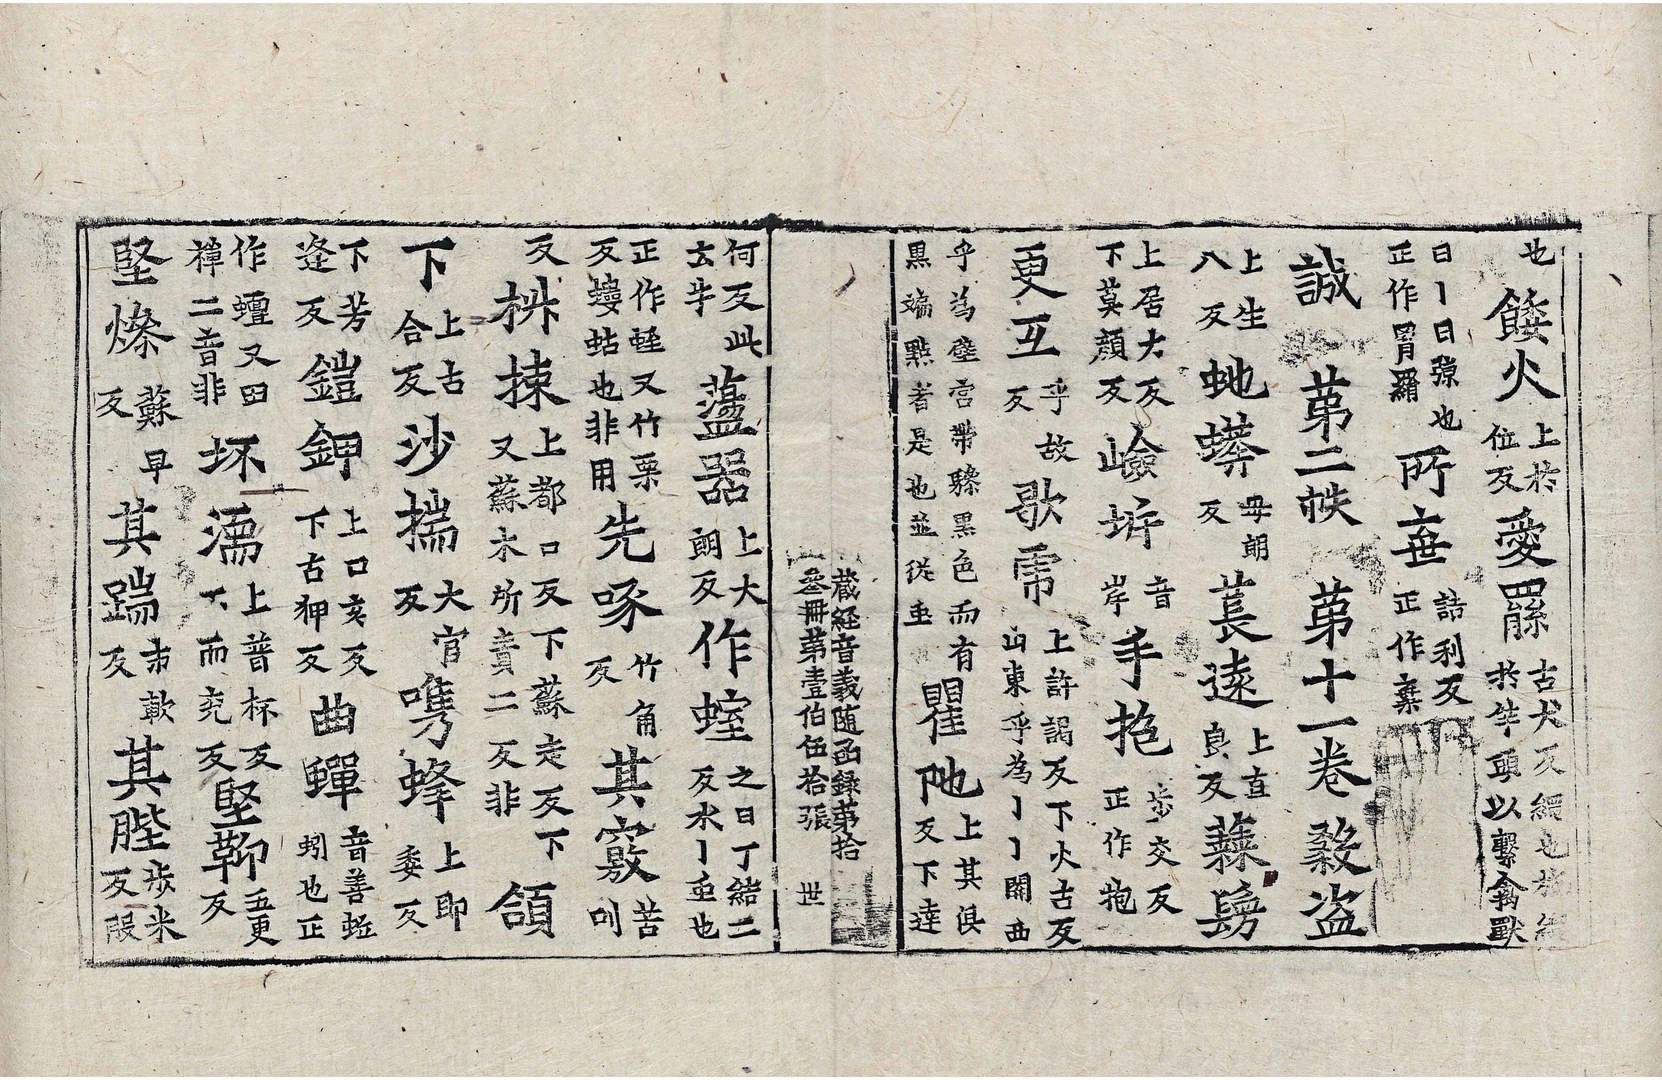 也餧火上於位反愛羂古犬反網也於竿頭以繫禽獸
曰丨曰弶也正作罥羅所棄詰利反正作棄
誠第二帙第十一卷殺盜
上生八反虵蟒毋朗反萇遠上直良反
上居大反下莫顔反嶮㟁音岸手抱步交反正作抱
更互乎故反歌雩上許謁反下火古反山東乎為丨丨關西
乎為壁宫帶縣黑色而有黒斒點者是也並從垂瞿陁上其俱反下達
藏経音義随函録第拾
叄冊第壹伯伍拾張 世
何反此玄半盪器上大朗反作蛭之日丁結二反水丨垂也
正作蛭又竹栗反螻蛄也非用先啄竹角反其竅苦叫
反栟揀上都口反下蘇走反下又蘇木所責二反非頜
下上古合反沙揣大官反嘴蜂上即委反
下芳逢反鎧鉀上口亥反下古狎反曲蟬音善蚯蚓也正
作蟺又田禪二音非坏濡上普杯反下而兖反堅鞕五更反
堅燥蘇早反其踹市軟反其䏶步米反股